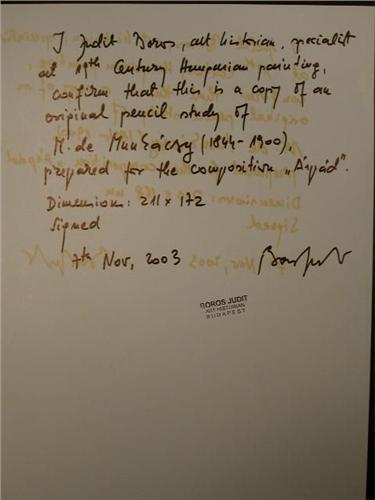 I Judit Boros, art historian, specialist
at 19th Century Hungarian painting,
confirm that this is a copy of an
original pencil study of
M. de Munkácsy (1844-1900),
prepared for the composition „Árpád".
Dimensions: 211 x 172
Signed
7th Nov, 2003
BOROS JUDIT
ART HISTORIAN
BUDAPEST